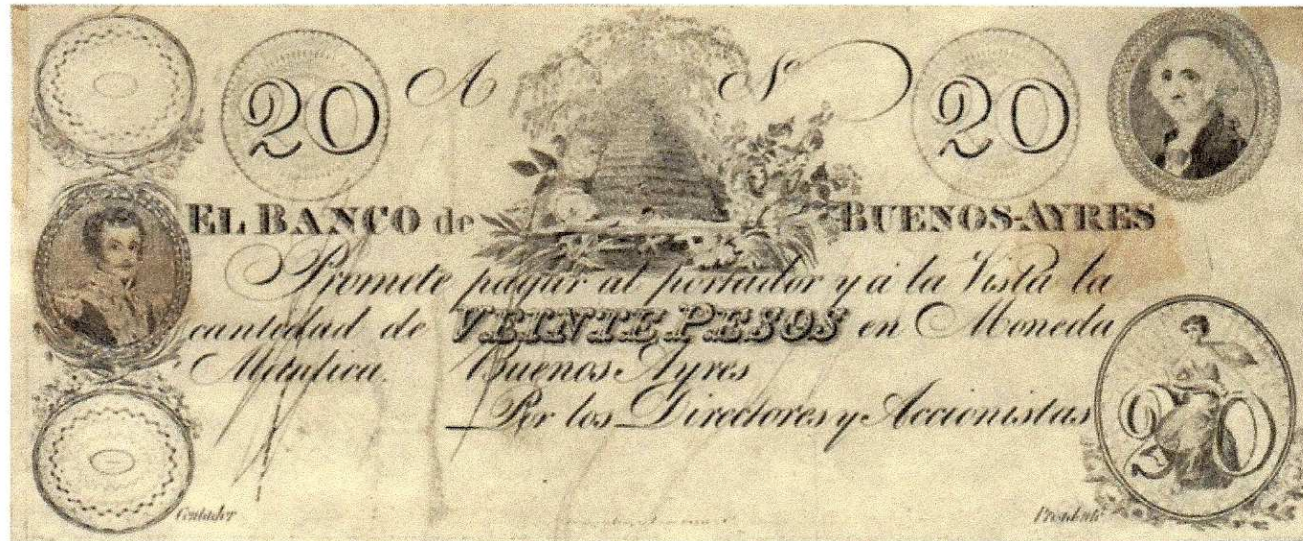 20 A No 20
EL BANCO de BUENOS-AYRES
Promete pagar al portador y á la Vista la
cantidad de VEINTE PESOS en Moneda
Metalica. Buenos Ayres
Por los Directores y Accionistas
20
Contador Presidente